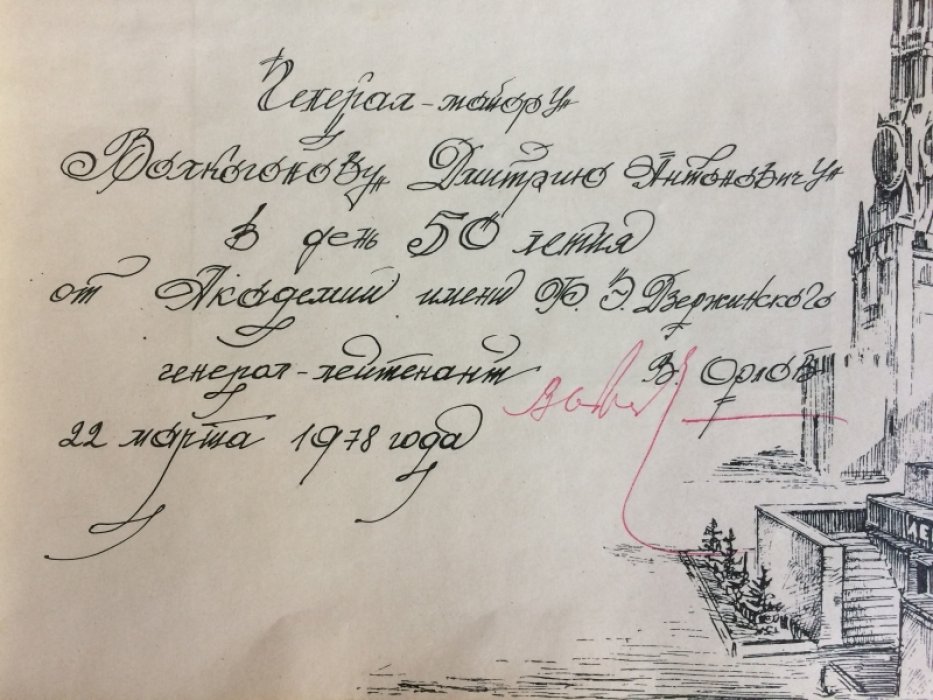 Генерал-майору
Волкогонову Дмитрию Антоновичу
в день 50 летия
от Академии имени Ф. Э. Дзержинского
генерал-лейтенант В. Орлов
22 марта 1978 года
ЛЕ